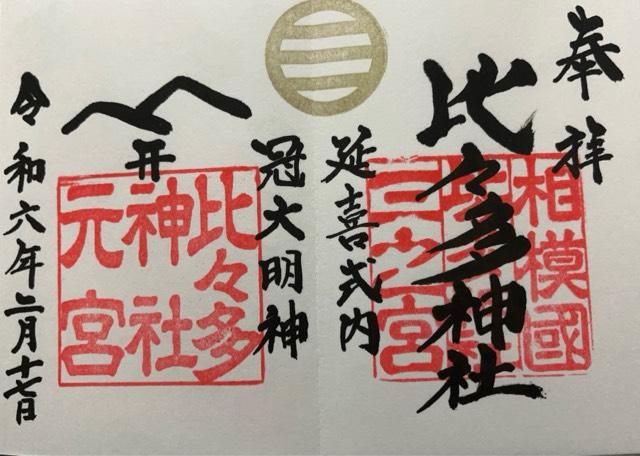 奉拝
比々多神社
相模國
三之宮
延喜式内
冠大明神
比々多
神社
元宮
令和六年二月十七日